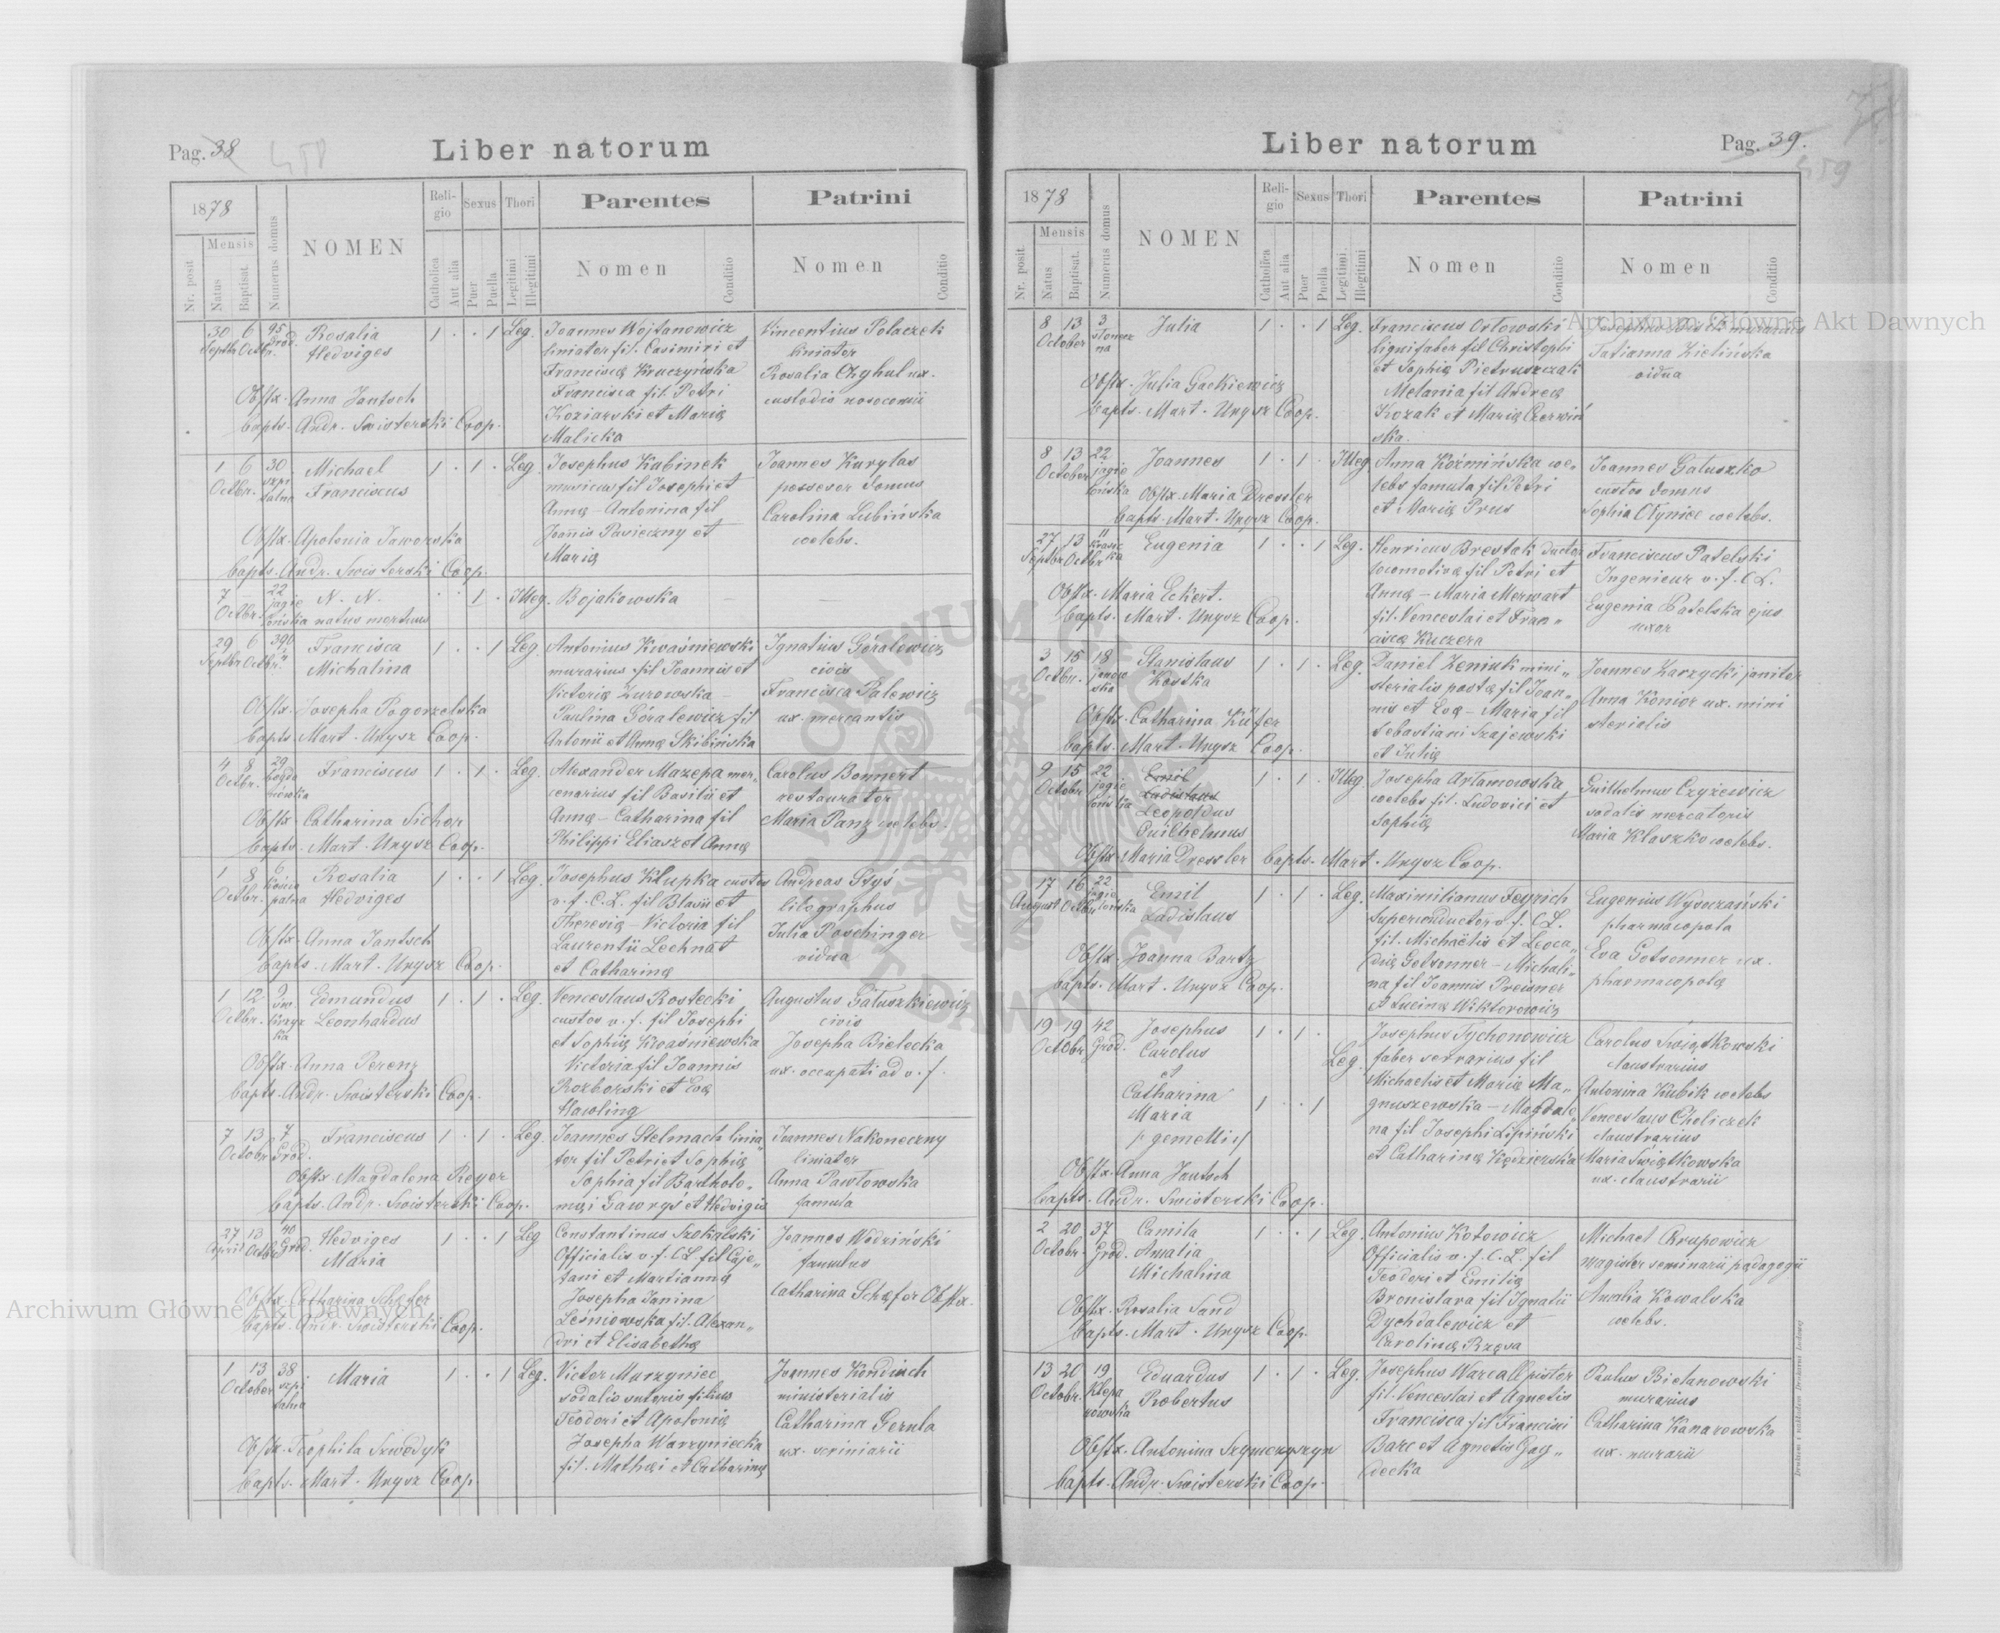 Pag. 38
458
Liber natorum
1878
Mensis
Nr. posit
Natus
Baptisat.
Numerus domus
NOMEN
Religio
Catholica
Aut alia
Sexus
Puer
Puella
Thori
Legitimi
Illegitimi
Parentes
Nomen
Conditio
Patrini
Nomen
Conditio
30 6 95 Rosalia 1 · · 1 Leg. Joannes Wojtanowicz Vincentius Polaczek
Septbr Octbr. Grod. Hedviges liniator fil. Casimiri et liniator
Franciscæ Kruczyńska Rosalia Chyhul ux.
Obstx. Anna Jantsch Francisca fil. Petri custodis nosocomii
bapts. Andr. Swisterski Coop. Koziarski et Mariæ
Malicka
1 6 30 Michael 1 · 1 · Leg. Josephus Kubinek Joannes Kurylas
Octbr. szpi Franciscus musicus fil Josephi et possesor domus
talna Annæ – Antonina fil Carolina Lubińska
Obstx. Apolonia Jaworska Joannis Pasieczny et coelebs.
bapts. Andr. Swisterski Coop. Mariæ
7 – 22 N. N. · · 1 · Illeg. Bojakowska – –
Octbr. jagie
lońska natus mortuus
29 6 390 Francisca 1 · · 1 Leg. Antonius Kwaśniewski Ignatius Góralewicz
Septbr Octbr. Michalina murarius fil Joannis et civis
Victoriæ Zurowska – Francisca Palewicz
Obstx. Josepha Pogorzelska Paulina Góralewicz fil ux. mercantis
bapts. Mart. Unysz Coop. Antonii et Annæ Skibińska
4 8 29 Franciscus 1 · 1 · Leg. Alexander Mazepa mer- Carolus Bonnert
Octbr. cenarius fil Basilii et restaurator
Obstx. Catharina Sicher Annæ – Catharina fil Maria Panz coelebs.
bapts. Mart. Unysz Coop. Philippi Eliasz et Annæ
1 8 6 Rosalia 1 · · 1 Leg. Josephus Klupka custos Andreas Styś
Octbr. Hedviges v. f. C. L. fil Blasii et litographus
Theresiæ – Victoria fil Julia Poschinger
Obstx. Anna Jantsch Laurentii Lechnat vidua
bapts. Mart. Unysz Coop. et Catharinæ
1 12 9 Edmundus 1 · 1 · Leg. Venceslaus Rostecki Augustus Gałuszkiewicz
Octbr. Leonhardus custos v. f. fil Josephi civis
et Sophiæ Kwaśniewska Josepha Bielecka
Obstx. Anna Perenz Victoria fil Joannis ux. occupati ad v. f.
bapts. Andr. Swisterski Coop. Rozborski et Evæ
Hawling
7 13 7 Franciscus 1 · 1 · Leg. Joannes Stelmach linia- Joannes Nakoneczny
Octobr Grod. tor fil Petri et Sophiæ liniator
Obstx. Magdalena Reyer Sophia fil Bartholo- Anna Pawłowska
bapts. Andr. Swisterski Coop. mæi Gawryś et Hedvigis famula
27 13 40 Hedviges 1 · · 1 Leg Constantinus Szokalski Joannes Wodziński
April Octbr Grod. Maria Officialis v. f. C. L. fil Caje- famulus
tani et Martiannæ Catharina Schäfer Obstx.
Obstx. Catharina Schäfer Josepha Janina
bapts. Andr. Swisterski Coop. Leśniowska fil. Alexan-
dri et Elisabethæ
1 13 38 Maria 1 · · 1 Leg. Victor Murzyniec Joannes Kondiuch
October szpi sodalis sutoris filius ministerialis
talna Teodori et Apoloniæ Catharina Gerula
Obstx. Teophila Szwodyk Josepha Warzyniecka ux. scriniarii
bapts. Mart. Unysz Coop. fil. Mathæi et Catharinæ
Liber natorum
Pag. 39.
459
1878
Mensis
Nr. posit
Natus
Baptisat.
Numerus domus
NOMEN
Religio
Catholica
Aut alia
Sexus
Puer
Puella
Thori
Legitimi.
Illegitimi
Parentes
Nomen
Conditio
Patrini
Nomen
Conditio
8 13 3 Julia 1 · · 1 Leg. Franciscus Orłowski
October lignifaber fil Christophi Tatianna Zielińska
et Sophiæ Pietruszczak vidua
Obstx. Julia Gackiewicz Melania fil Andreæ
bapts. Mart. Unysz Coop. Kozak et Mariæ Czerwiń
ska.
8 13 22 Joannes 1 · 1 · Illeg Anna Koźmińska coe- Joannes Gałuszko
October jagie lebs famula fil Petri custos domus
lońska Obstx. Maria Dressler et Mariæ Prus Sophia Olynice coelebs.
bapts. Mart. Unysz Coop.
27 13 11 Eugenia 1 · · 1 Leg. Henricus Brestak ductor Franciscus Patelski
Septbr Octbr locomotivæ fil Petri et Ingenieur v. f. C L.
Obstx. Maria Eckert. Annæ – Maria Merwart Eugenia Patelska ejus
bapts. Mart. Unysz Coop. fil. Venceslai et Fran- uxor
ciscæ Kuczera
3 15 18 Stanislaus 1 · 1 · Leg. Daniel Zeniuk mini- Joannes Karzycki janitor
Octbr. janow Kostka sterialis postæ fil Joan- Anna Konior ux. mini
ska nis et Evæ – Maria fil sterialis
Obstx. Catharina Küfer Sebastiani Szajewski
bapts. Mart. Unysz Coop. et Juliæ
9 15 22 Emil 1 · 1 · Illeg Josepha Artamowska Guilhelmus Czyżewicz
Octobr jagie Ladislaus coelebs fil. Ludovici et sodalis mercatoris
lońska Leopoldus Sophiæ Maria Kloszko coelebs.
Guilhelmus
Obstx. Maria Dressler bapts. Mart. Unysz Coop.
17 16 22 Emil 1 · 1 · Leg. Maximilianus Feyrich Eugenius Wysoczański
August Octbr Ladislaus Superconductor v. f. C L. pharmacopola
fil. Michaëlis et Leoca- Eva Getsonner ux.
Obstx. Joanna Bartz diæ Getsonner – Michali- pharmacopolæ
bapts. Mart. Unysz Coop. na fil Joannis Preisner
et Lucinæ Wiktorowicz
19 19 42 Josephus 1 · 1 · Josephus Tychonowicz Carolus Świątkowski
Octobr Grod. Carolus Leg. faber serrarius fil claustrarius
et Michaelis et Mariæ Ma- Antonina Kubik coelebs
Catharina 1 · · 1 gnuszewska – Magdale Venceslaus Choliczek
Maria na fil Josephi Lipiński claustrarius
/: gemelli :/ et Catharinæ Kędzierska Maria Świątkowska
Obstx. Anna Jantsch ux. claustrarii
bapts. Andr. Swisterski Coop.
2 20 37 Camila 1 · · 1 Leg. Antonius Kotowicz Michael Krupowicz
Octobr. Grod. Amalia Officialis v. f. C. L. fil magister seminarii pædagogii
Michalina Teodori et Emiliæ Amalia Kowalska
Obstx. Rosalia Sand Bronislava fil Ignatii coelebs.
bapts. Mart. Unysz Coop. Dychdalewicz et
Carolinæ Rzęsa
13 20 19 Eduardus 1 · 1 · Leg. Josephus Warcall pistor Paulus Bielanowski
Octobr. Klepa Robertus fil. Venceslai et Agnetis murarius
rowska Francisca fil Francisci Catharina Kanarowska
Obstx. Antonina Szymczyszyn Barc et Agnetis Gay- ux. murarii
bapts. Andr. Swisterski Coop. decka
Archiwum Główne Akt Dawnych
Archiwum Główne Akt Dawnych
ARCHIWUM GŁÓWNE AKT DAWNYCH